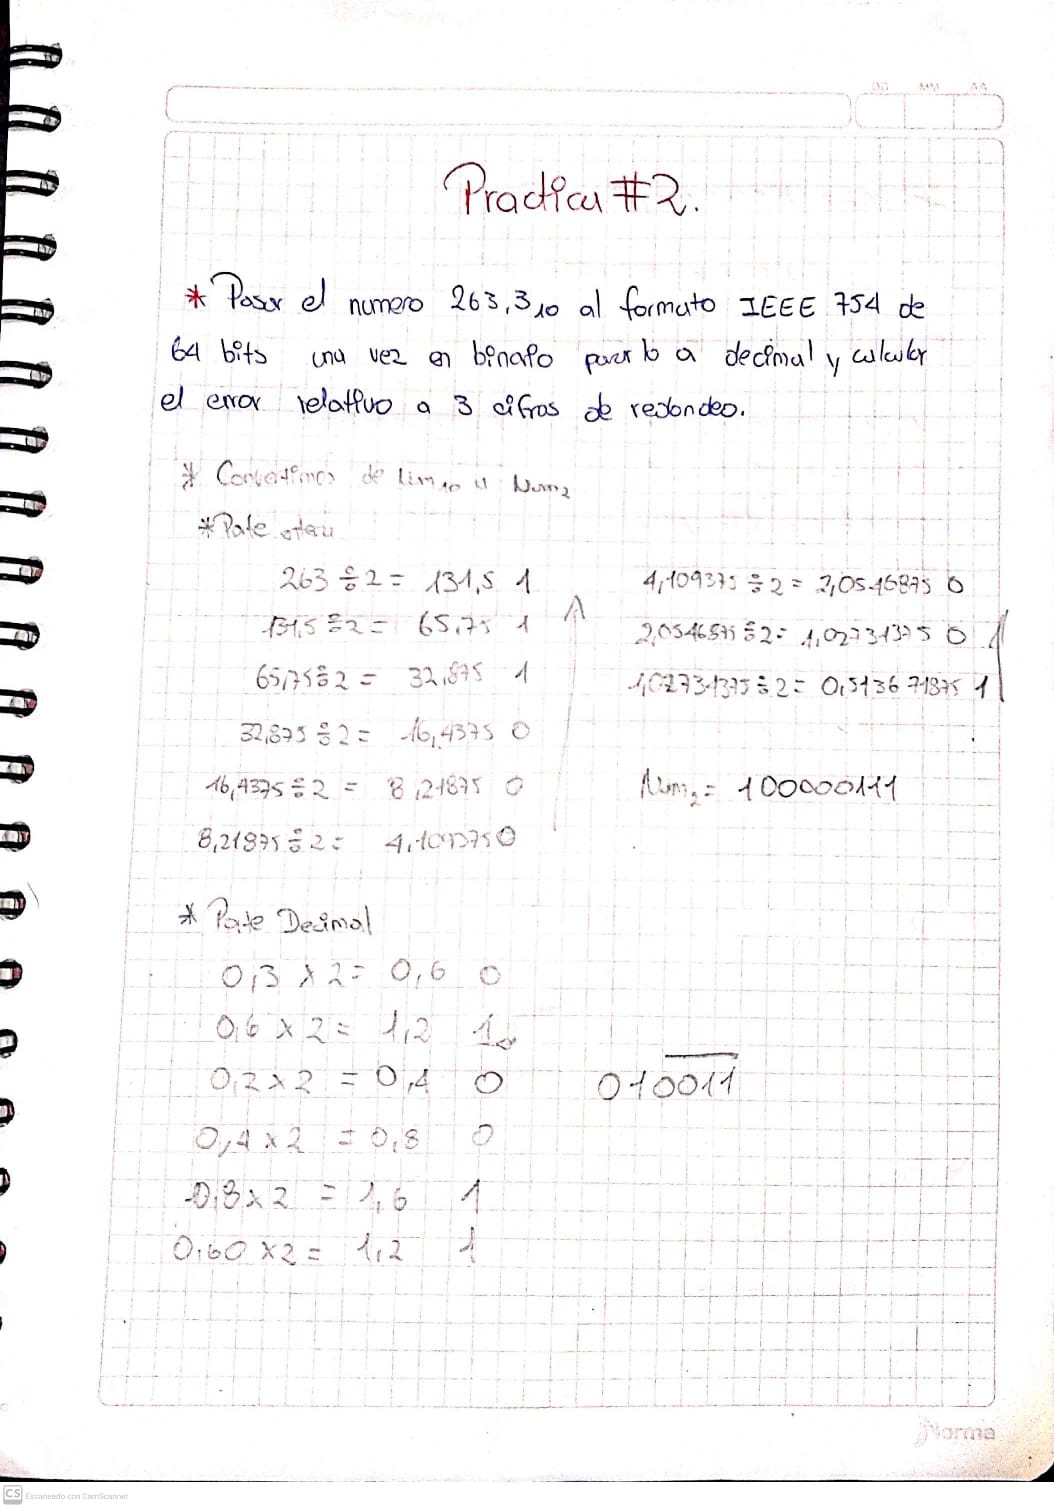 DD MM AA
Practica #2.
* Pasar el numero 263,3₁₀ al formato IEEE 754 de
64 bits una vez en binario pasarlo a decimal y calcular
el error relativo a 3 cifras de redondeo.
* Convertimos de ₁₀ a Num₂
* Parte
263 ÷ 2 = 131,5 1
131,5 ÷ 2 = 65,75 1
65,75 ÷ 2 = 32,875 1
32,875 ÷ 2 = 16,4375 0
16,4375 ÷ 2 = 8,21875 0
8,21875 ÷ 2 = 4,109375 0
4,109375 ÷ 2 = 2,0546875 0
2,0546875 ÷ 2 = 1,02734375 0
1,02734375 ÷ 2 = 0,513671875 1
Num₂ = 100000111
* Parte Decimal
0,3 x 2 = 0,6 0
0,6 x 2 = 1,2 1
0,2 x 2 = 0,4 0
010011
0,4 x 2 = 0,8 0
0,8 x 2 = 1,6 1
0,60 x 2 = 1,2 1
Norma
CS Escaneado con CamScanner